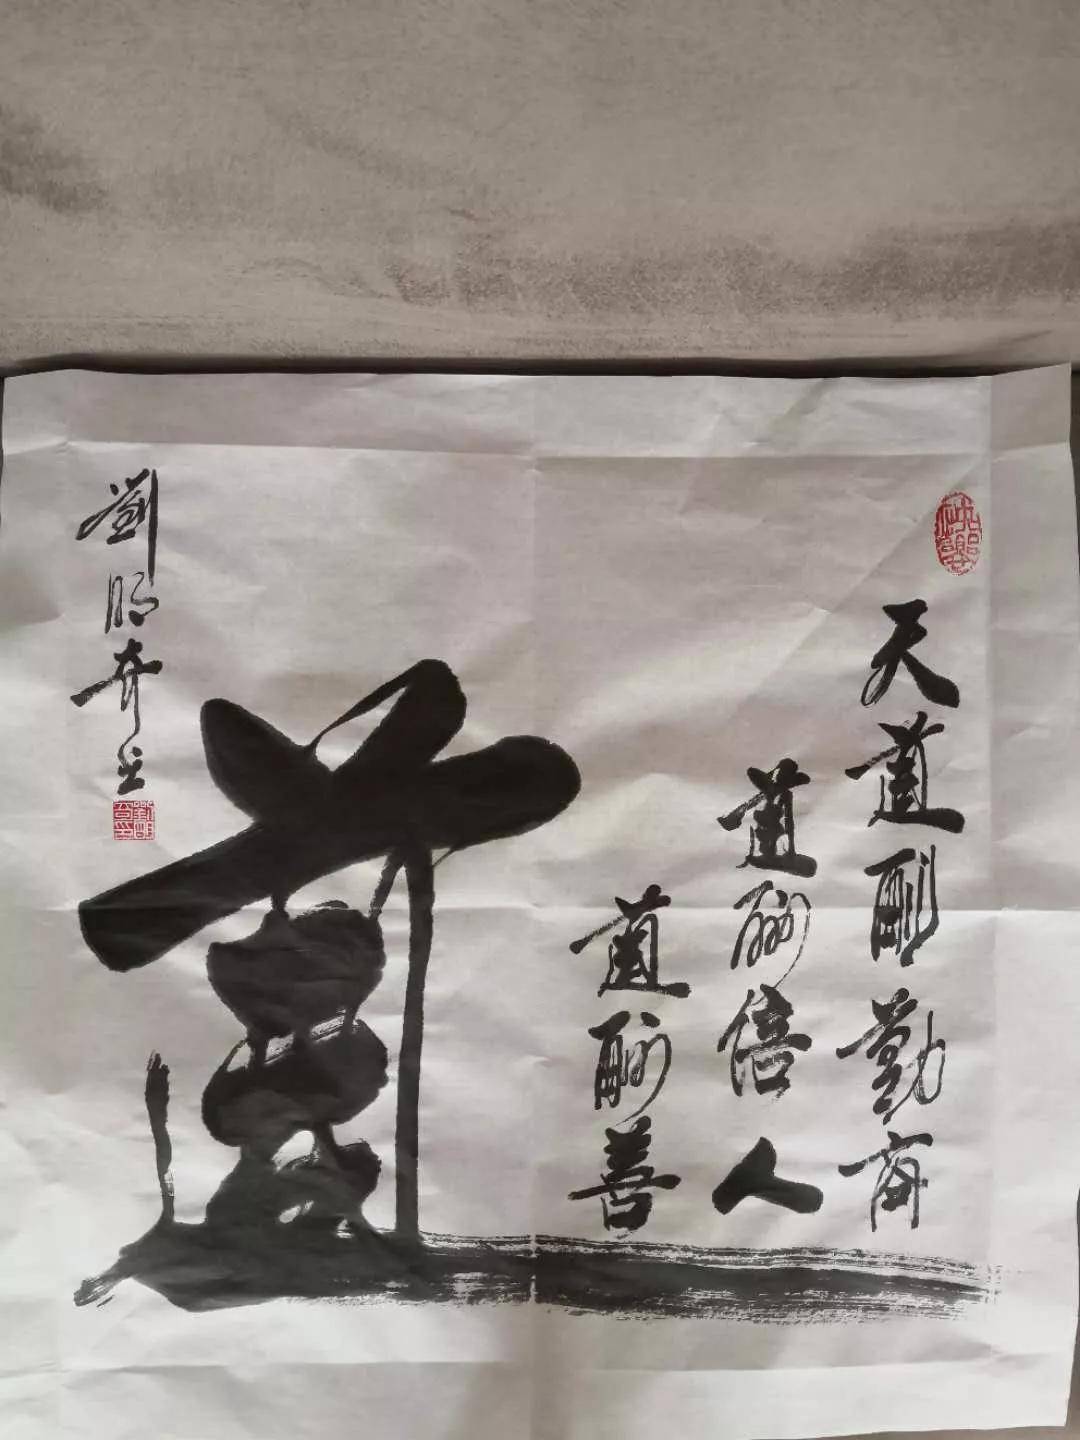 天道酬勤商
道酬信人
道酬善
道
劉